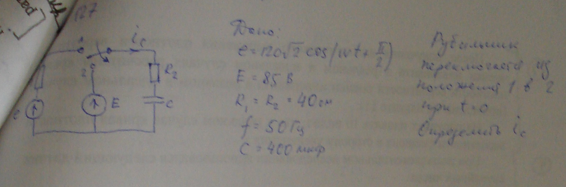 127
1
i_c
2
R₂
e
E
C
Дано:
e = 120√2 cos(wt + π/2)
E = 85 В
R₁ = R₂ = 40 ом
f = 50 Гц
C = 400 мкф
Рубильник
переключают из
положения 1 в 2
при t = 0
Определить i_c